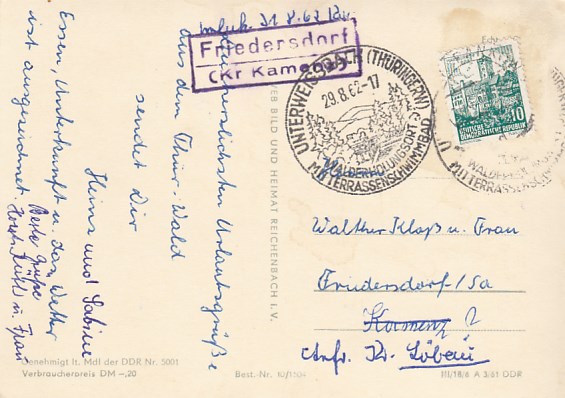 zurück 31.8.62
Friedersdorf
(Kr Kamenz)
Die herzlichsten Urlaubsgrüße
aus dem Thür. Wald
sendet Dir
Heinz und Sabine
Essen, Unterkunft u. das Wetter
ist ausgezeichnet.
Beste Grüße
u. Frau
UNTERWEISSBACH (THÜRINGERW)
29.8.62-17
WALDERHOLUNGSORT
MIT TERRASSENSCHWIMMBAD
10
DEUTSCHE
DEMOKRATISCHE REPUBLIK
U
WALDERHO
MIT TERRASSENSCHW
VEB BILD UND HEIMAT REICHENBACH I. V.
Walther Kloß u. Frau
Friedersdorf/Sa
Kamenz 2
Kr. Löbau
Genehmigt lt. MdI der DDR Nr. 5001
Verbraucherpreis DM -,20
Best.-Nr. 10/1504
III/18/6 A 3/61 DDR